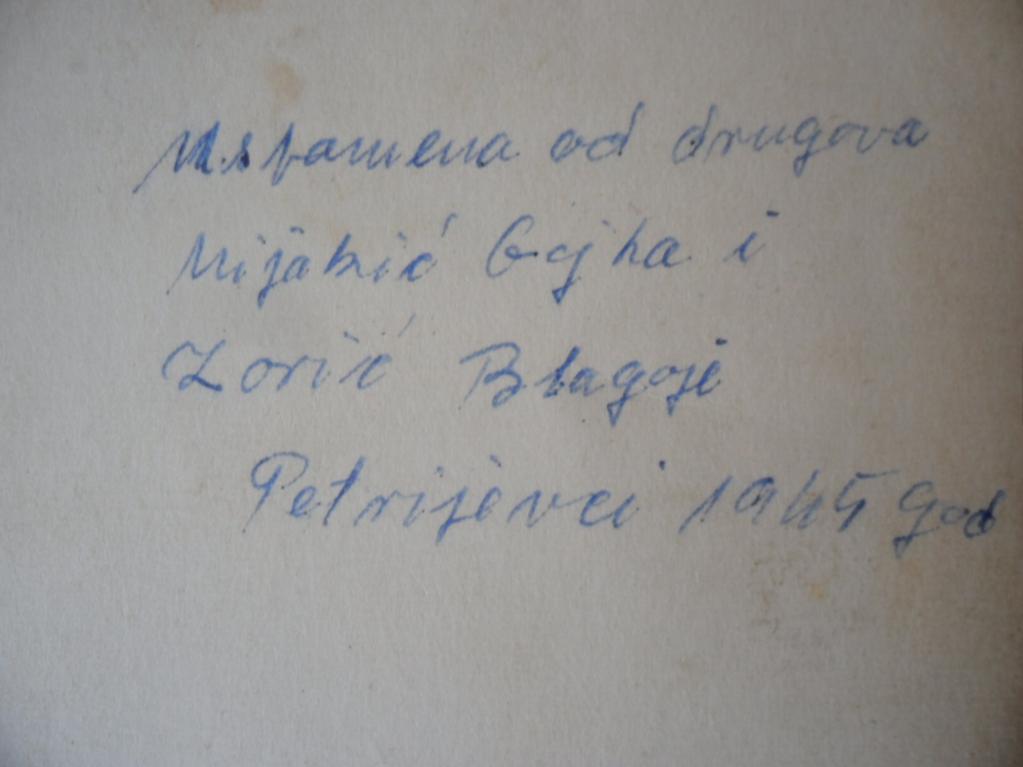 Uspamena od drugova
Mijakić Gojka i
Zorić Blagoje
Petrijevci 1945 god